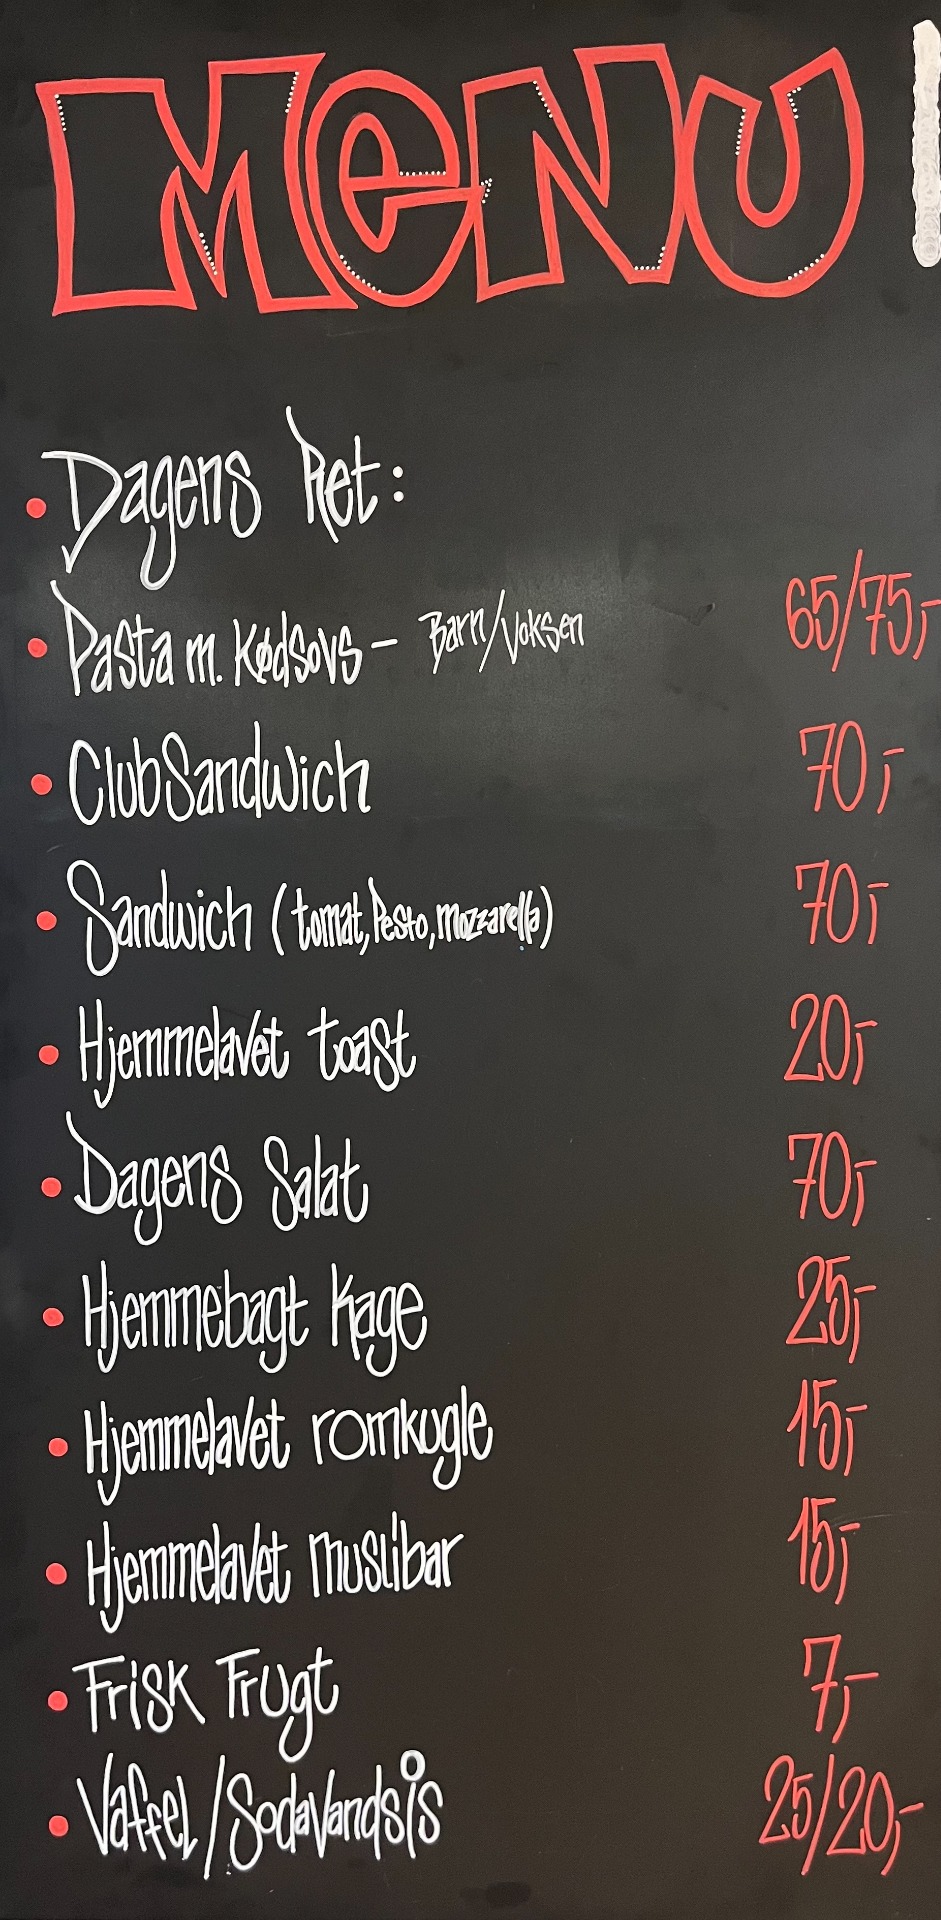 MeNU
• Dagens Ret:
• Pasta m. Kødsovs - Barn/Voksen 65/75,-
• ClubSandwich 70,-
• Sandwich (tomat, Pesto, Mozzarella) 70,-
• Hjemmelavet toast 20,-
• Dagens Salat 70,-
• Hjemmebagt Kage 25,-
• Hjemmelavet romkugle 15,-
• Hjemmelavet muslibar 15,-
• Frisk Frugt 7,-
• Vaffel/Sodavandsis 25/20,-